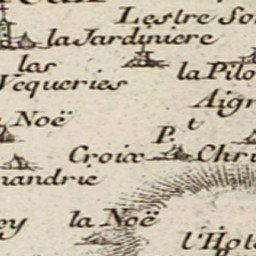 Lestre
la Jardiniere
las
Vequeries
la Pilo
Aigr
Noë
P.t
Croix
Chri
nandrie
la Noë
ey
l'Hote